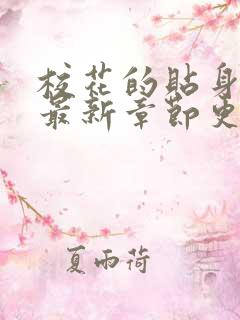 校花的贴身
最新章节更
夏雨荷